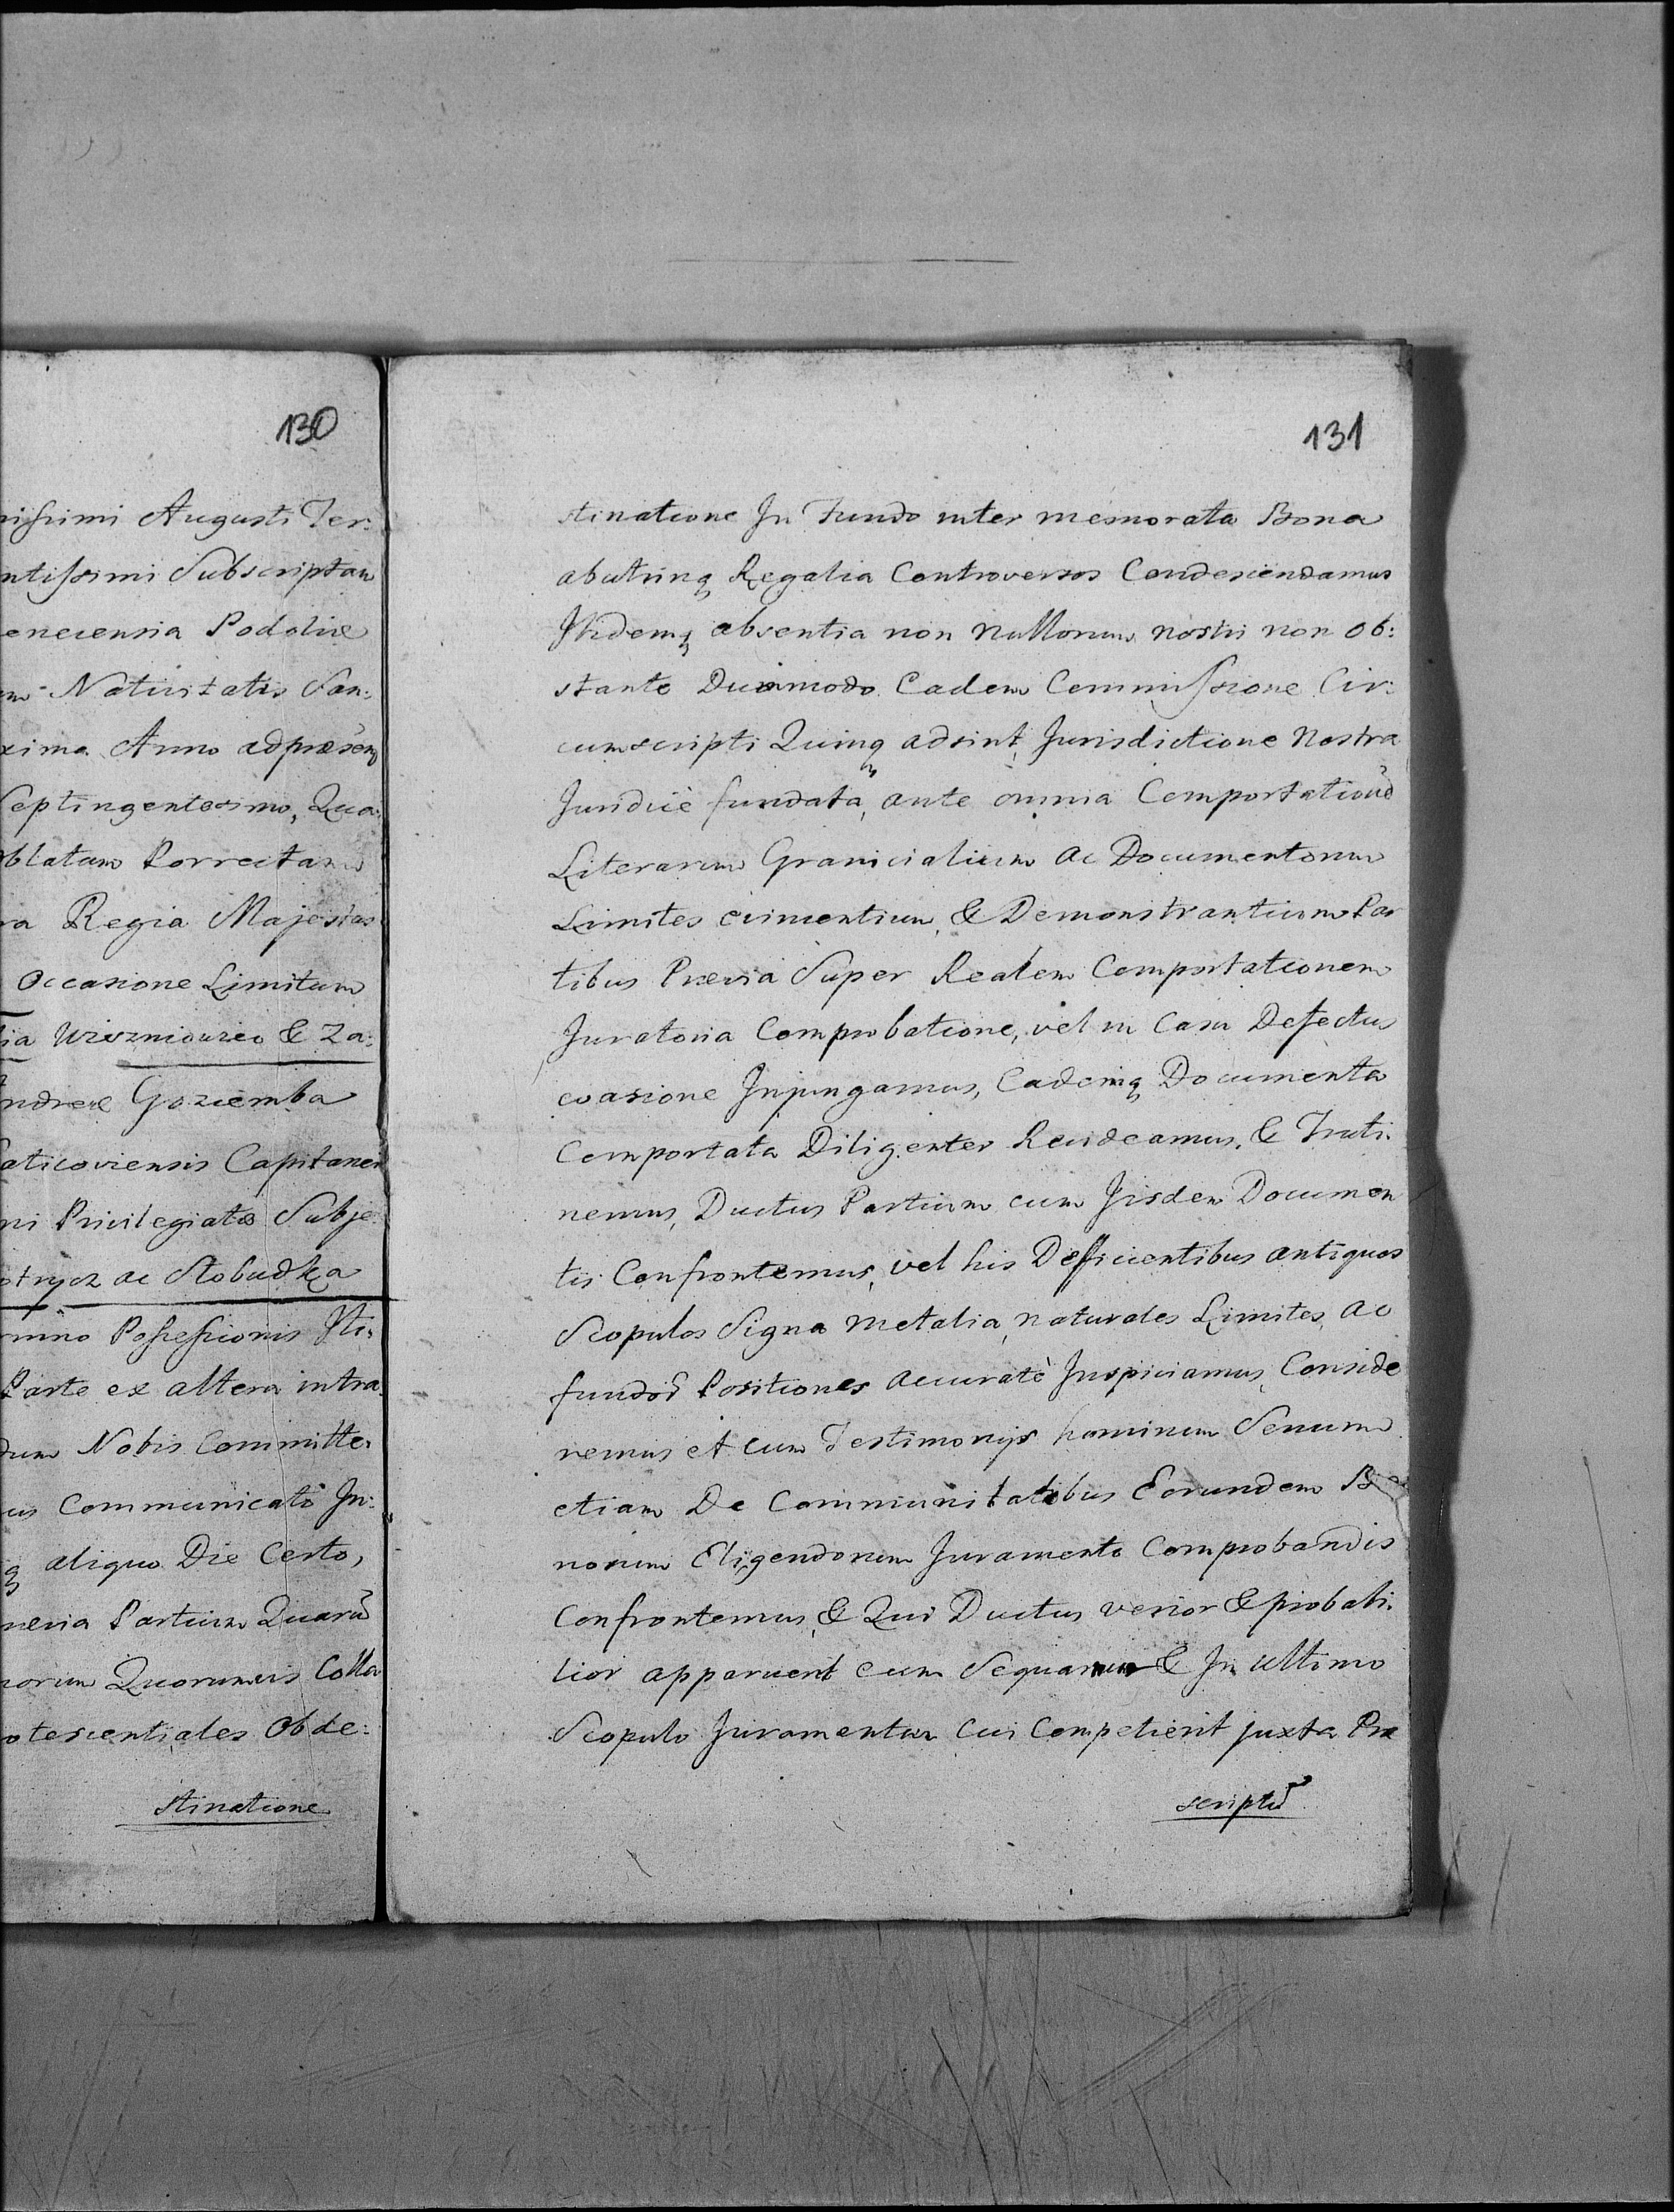 130
nissimi Augusti Ter:
ntissimi Subscriptam
enecensia Podoliæ
m Nativitatis San:
xima Anno ad præsenq
Septingentesimo, Qua:
oblatam Porrectam
ra Regia Majestas
Occasione Limitum
ia Wiszniowiec & Za:
ndreæ Goziemba
aticoviensis Capitanei
ni Privilegiato Subje
otrycz ac Slobudka
rmino Possessionis Iti:
Parte ex altera intra
dum Nobis Committe:
us Communicató In:
q aliquo Die Certo,
neria Partium Quarũ
norum Quorumvis Colla
otescentiales Obde:
stinatione
131
stinatione In Fundo inter memorata Bona
abutrinq Regalia Controversos Condescendamus
Ibidemq absentia non nullorum nostri non ob:
stante Dummodo Eadem Commissione Cir:
cumscripti Quinq adsint, Jurisdictione Nostra
Juridicè fundata, ante omnia Comportationẽ
Literarum Granicialium ac Documentorum
Limites evimentium, & Demonstrantium Par
tibus Prævia Super Realem Comportationem
Juratoria Comprobatione, vel in Casu Defectus
evasione Injungamus, Eademq Documenta
Comportata Diligenter Revideamus, & Truti:
nemus, Ductus Partium cum Iisdem Documen
tis Confrontemus, vel his Defficientibus antiquos
Scopulos Signa Metalia, naturales Limites, ac
fundor̃ Positiones accuratè Inspiciamus, Conside
remus et cum Testimonijs hominum Senum
etiam De Communitatibus Eorundem Bo
norum Eligendorum Juramento Comprobandis
Confrontemus, & Qui Ductus verior & probabi:
lior apparuerit eum Sequamur & In ultimo
Scopulo Juramentum Cui Competierit juxta Præ
scriptũ